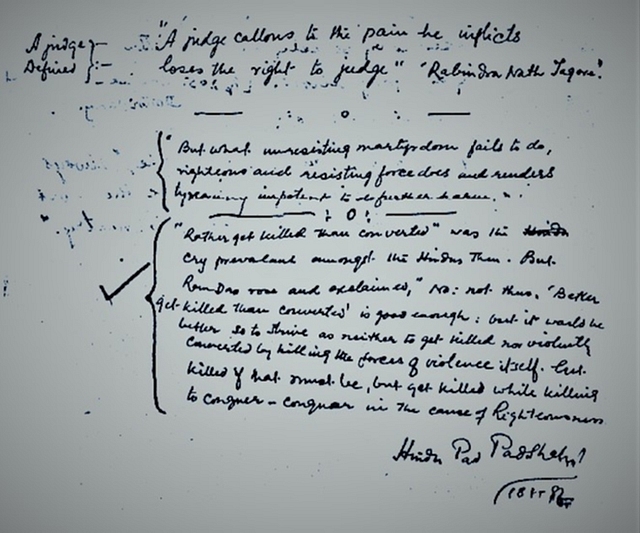 A judge }—
Defined } :—
"A judge callous to the pain he inflicts
loses the right to judge" 'Rabindra Nath Tagore'.
— o —
"But what unresisting martyrdom fails to do,
righteous and resisting force does and renders
tyranny impotent to do further harm."
— : o : —
"Rather get killed than converted" was the
cry prevalent amongst the Hindus then. But
Ram Das rose and exclaimed, "No: not thus. 'Better
get killed than converted' is good enough: but it would be
better so to strive as neither to get killed nor violently
converted by killing the forces of violence itself. Get
killed if that must be, but get killed while killing
to conquer - conquer in the cause of Righteousness
Hindu Pad Padshahi